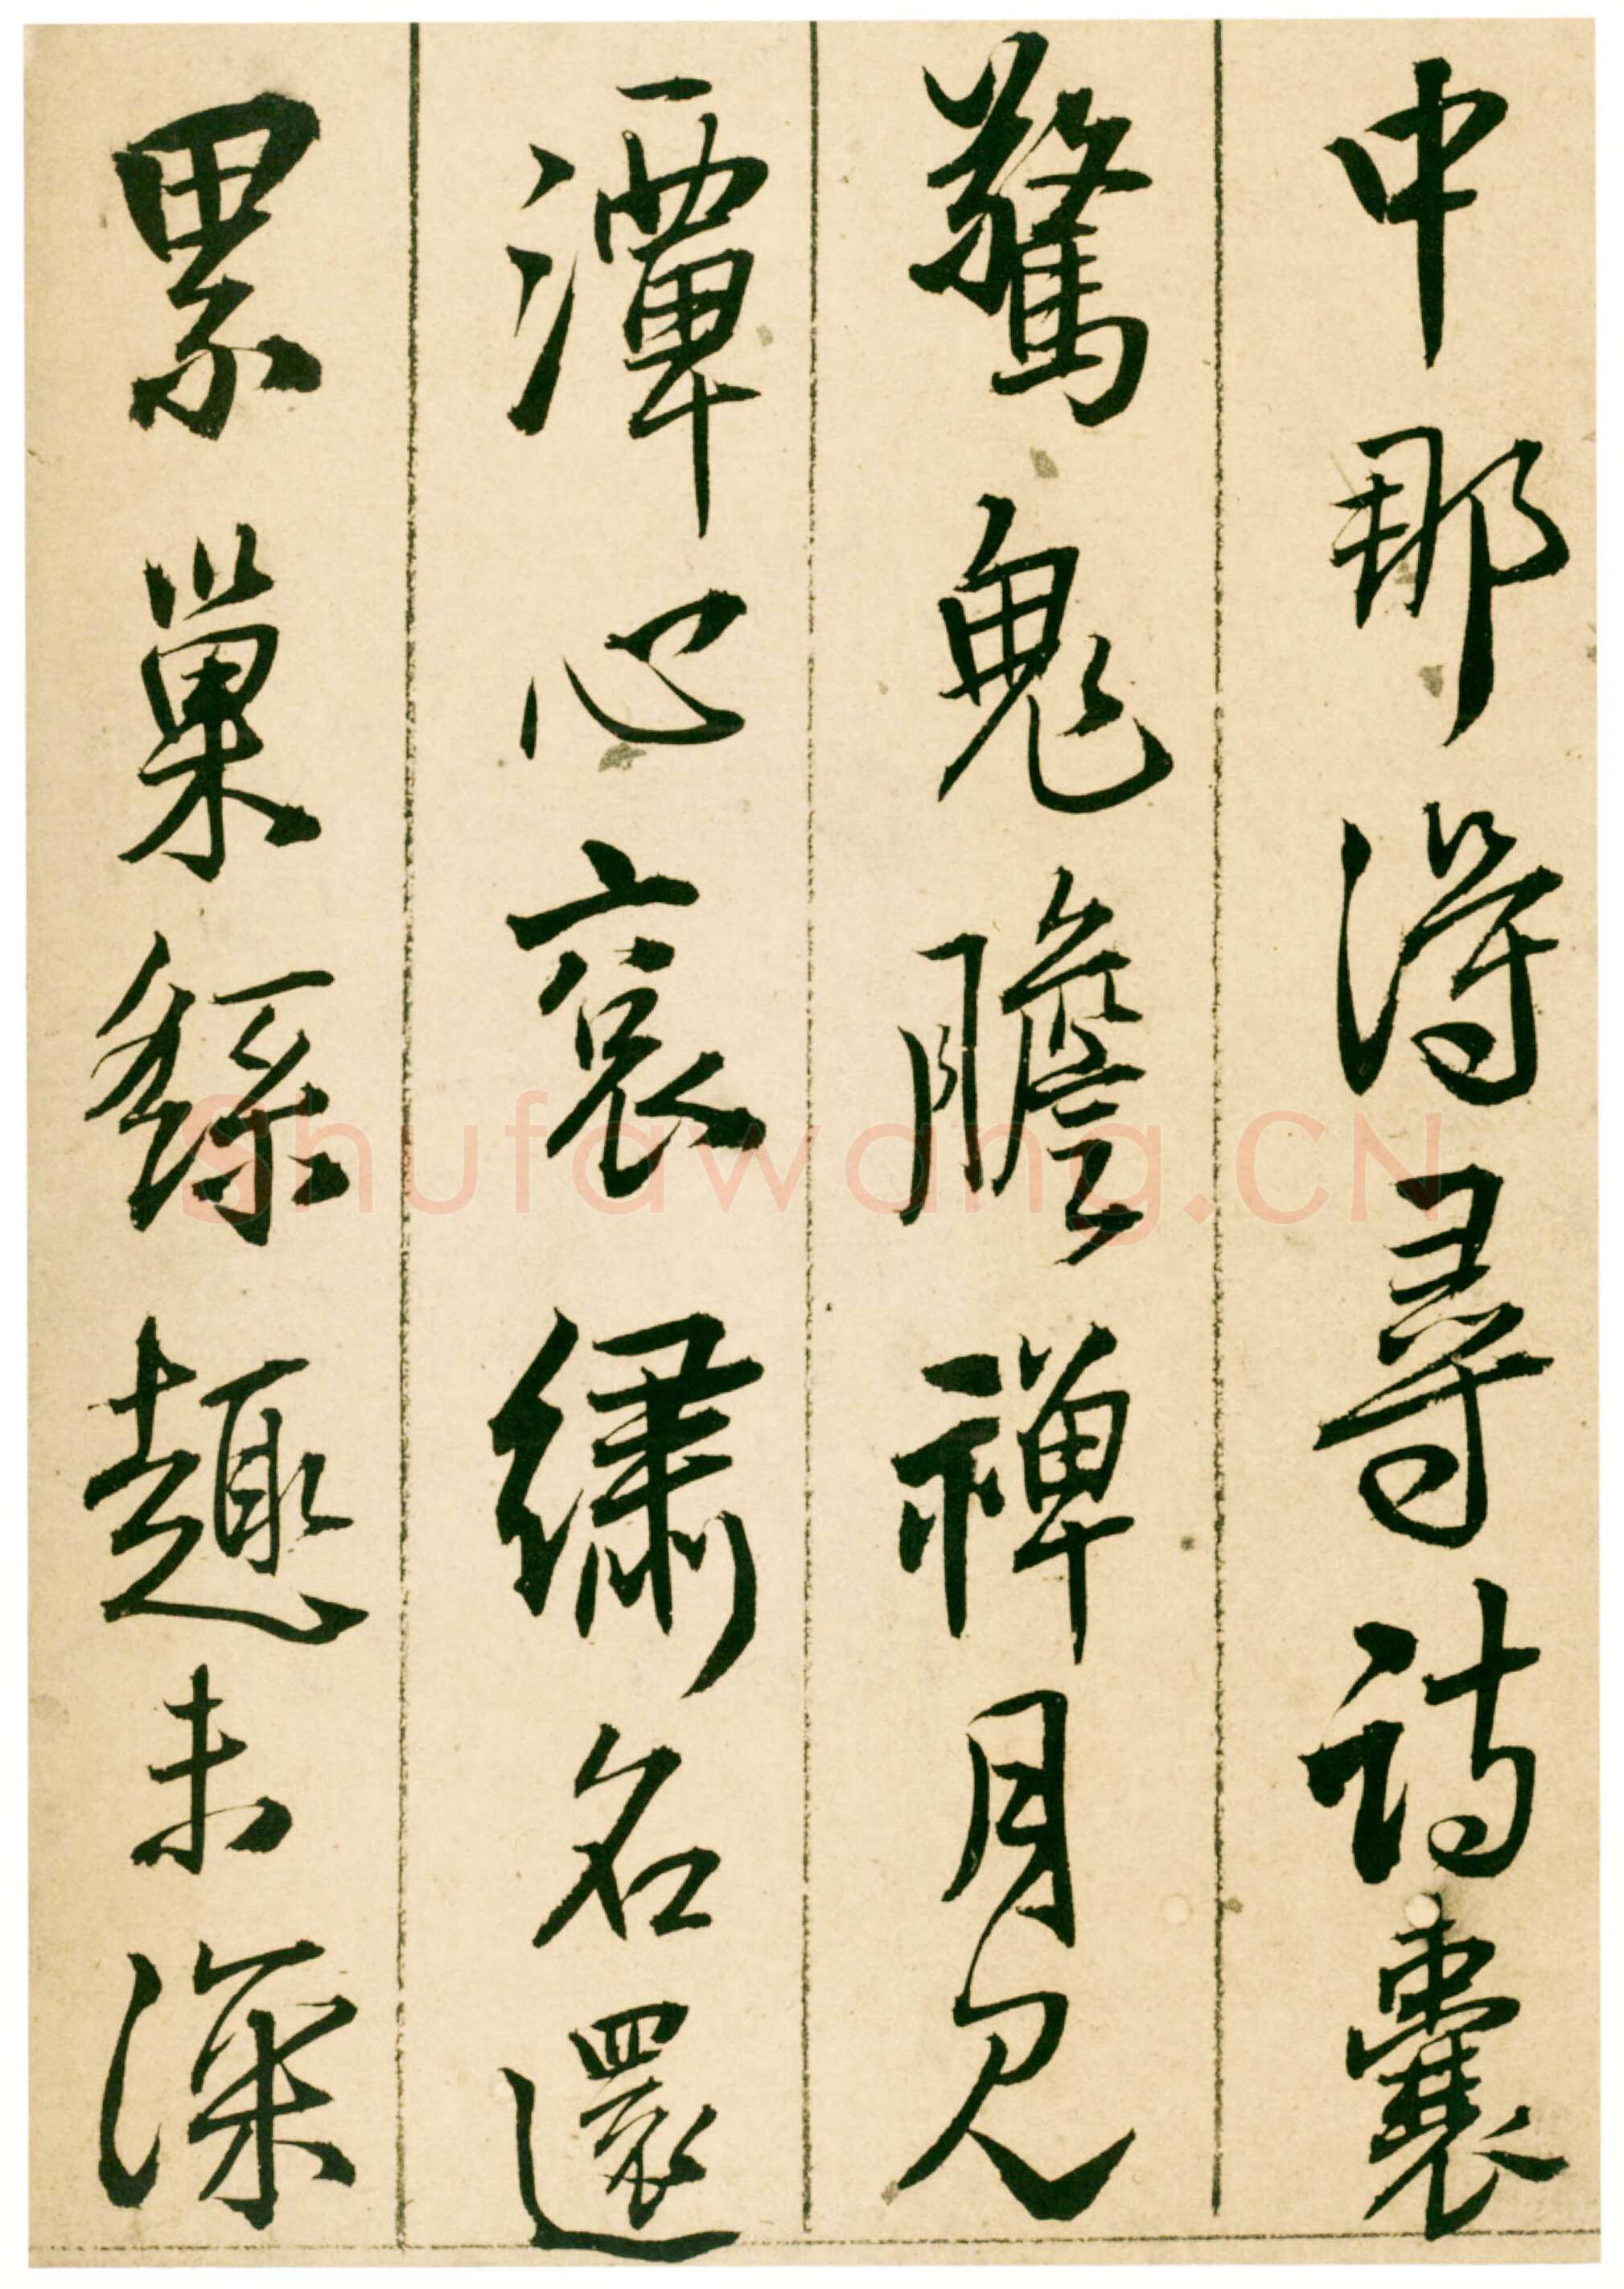 中那得尋詩囊
驚鬼膽禪月見
潭心衮繡名還
累巢繇趣未深
Shufawang.CN